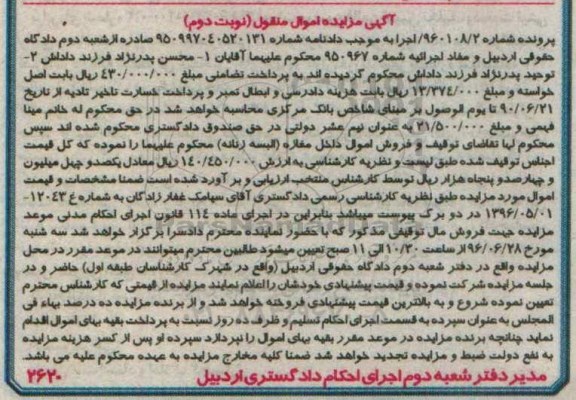 آگهی مزایده اموال منقول (نوبت دوم)
پرونده شماره ۹۶۰۱۰۸/۲ اجرا به موجب دادنامه شماره ۹۵۰۹۹۷۰۴۰۵۲۰۱۳۱ صادره ازشعبه دوم دادگاه
حقوقی اردبیل و مفاد اجرائیه شماره ۹۵۰۹۶۷ محکوم علیهما آقایان ۱- محسن پدرنژاد فرزند داداش ۲-
توحید پدرنژاد فرزند داداش محکوم گردیده اند به پرداخت تضامنی مبلغ ۴۳۰/۰۰۰/۰۰۰ ریال بابت اصل
خواسته و مبلغ ۱۳/۳۷۴/۰۰۰ ریال بابت هزینه دادرسی و ابطال تمبر و پرداخت خسارت تاخیر تادیه از تاریخ
۹۰/۰۶/۲۱ تا یوم الوصول بر مبنای شاخص بانک مرکزی محاسبه خواهد شد در حق محکوم له خانم مینا
فهیمی و مبلغ ۲۱/۵۰۰/۰۰۰ به عنوان نیم عشر دولتی در حق صندوق دادگستری محکوم شده اند سپس
محکوم لها تقاضای توقیف و فروش اموال داخل مغازه (البسه زنانه) محکوم علیهما را نموده که کل قیمت
اجناس توقیف شده طبق لیست و نظریه کارشناسی به ارزش ۱۴۰/۴۵۰/۰۰۰ ریال معادل یکصدو چهل میلیون
و چهارصدو پنجاه هزار ریال توسط کارشناس منتخب ارزیابی و بر آورد شده است ضمنا مشخصات و قیمت
اموال مورد مزایده طبق نظریه کارشناسی رسمی دادگستری آقای سیامک غفار زادگان به شماره ۱۲۰۴۳۴-
۱۳۹۶/۰۵/۰۱ در دو برگ پیوست میباشد بنابراین در اجرای ماده ۱۱۴ قانون اجرای احکام مدنی موعد
مزایده جهت فروش مال توقیفی مذکور که با حضور نماینده محترم دادسرا برگزار خواهد شد سه شنبه
مورخ ۹۶/۰۶/۲۸ از ساعت ۱۰/۳۰ الی ۱۱ صبح تعیین میشود طالبین محترم میتوانند در موعد مقرر در محل
مزایده واقع در دفتر شعبه دوم دادگاه حقوقی اردبیل (واقع در شهرک کارشناسان طبقه اول) حاضر و در
جلسه مزایده شرکت نموده و قیمت پیشنهادی خودشان را اعلام نمایند مزایده از قیمتی که کارشناس محترم
تعیین نموده شروع و به بالاترین قیمت پیشنهادی فروخته خواهد شد و از برنده مزایده ده درصد بهاء فی
المجلس به عنوان سپرده به قسمت اجرای احکام تسلیم و ظرف ده روز نسبت به پرداخت بقیه بهای اموال اقدام
نماید چنانچه برنده مزایده در موعد مقرر بقیه بهای اموال را نپردازد سپرده او پس از کسر هزینه مزایده
به نفع دولت ضبط و مزایده تجدید خواهد شد ضمنا کلیه مخارج مزایده به عهده محکوم علیه می باشد.
مدیر دفتر شعبه دوم اجرای احکام دادگستری اردبیل ۲۶۲۰